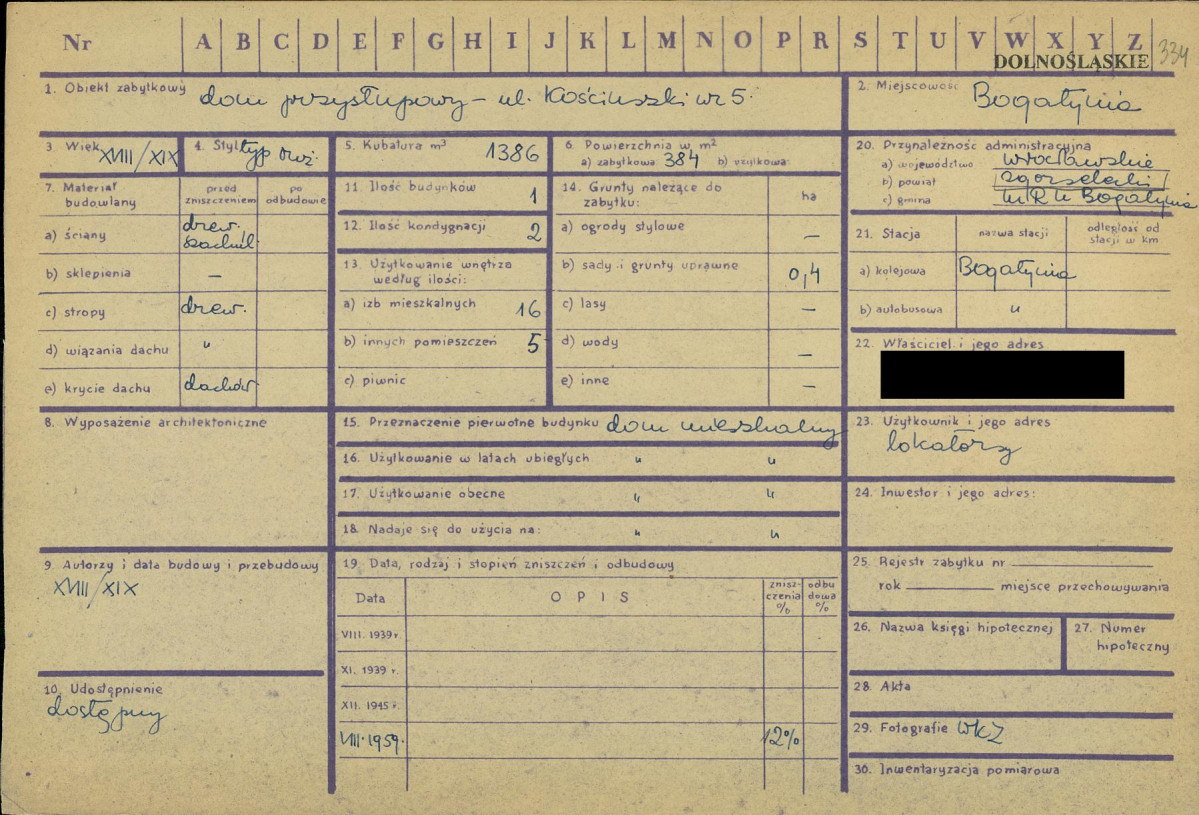 Nr A B C D E F G H I J K L M N O P R S T U V W X Y Z
DOLNOŚLĄSKIE 334
1. Obiekt zabytkowy dom przysłupowy – ul. Kościuszki nr 5.
2. Miejscowość Bogatynia
3. Wiek XVIII/XIX
4. Styl typ łuż.
5. Kubatura m³ 1386
6. Powierzchnia w m²
a) zabytkowa 384 b) użytkowa
20. Przynależność administracyjna
a) województwo wrocławskie
b) powiat zgorzelecki
c) gmina M R N Bogatynia
7. Materiał budowlany
przed zniszczeniem
po odbudowie
a) ściany drew. szachul.
b) sklepienia –
c) stropy drew.
d) wiązania dachu "
e) krycie dachu dachów.
11. Ilość budynków 1
12. Ilość kondygnacji 2
13. Użytkowanie wnętrza
według ilości:
a) izb mieszkalnych 16
b) innych pomieszczeń 5
c) piwnic
14. Grunty należące do
zabytku: ha
a) ogrody stylowe –
b) sady i grunty uprawne 0,4
c) lasy –
d) wody –
e) inne –
21. Stacja nazwa stacji odległość od stacji w km
a) kolejowa Bogatynia
b) autobusowa "
22. Właściciel i jego adres
8. Wyposażenie architektoniczne
15. Przeznaczenie pierwotne budynku dom mieszkalny
16. Użytkowanie w latach ubiegłych " "
17. Użytkowanie obecne " "
18. Nadaje się do użycia na: " "
23. Użytkownik i jego adres
lokatorzy
24. Inwestor i jego adres:
9. Autorzy i data budowy i przebudowy
XVIII/XIX
10. Udostępnienie
dostępny
19. Data, rodzaj i stopień zniszczeń i odbudowy
Data OPIS zniszczenia % odbudowa %
VIII. 1939 r.
XI. 1939 r.
XII. 1945 r.
VIII. 1959. 12%
25. Rejestr zabytku nr
rok miejsce przechowywania
26. Nazwa księgi hipotecznej
27. Numer hipoteczny
28. Akta
29. Fotografie WKZ
30. Inwentaryzacja pomiarowa